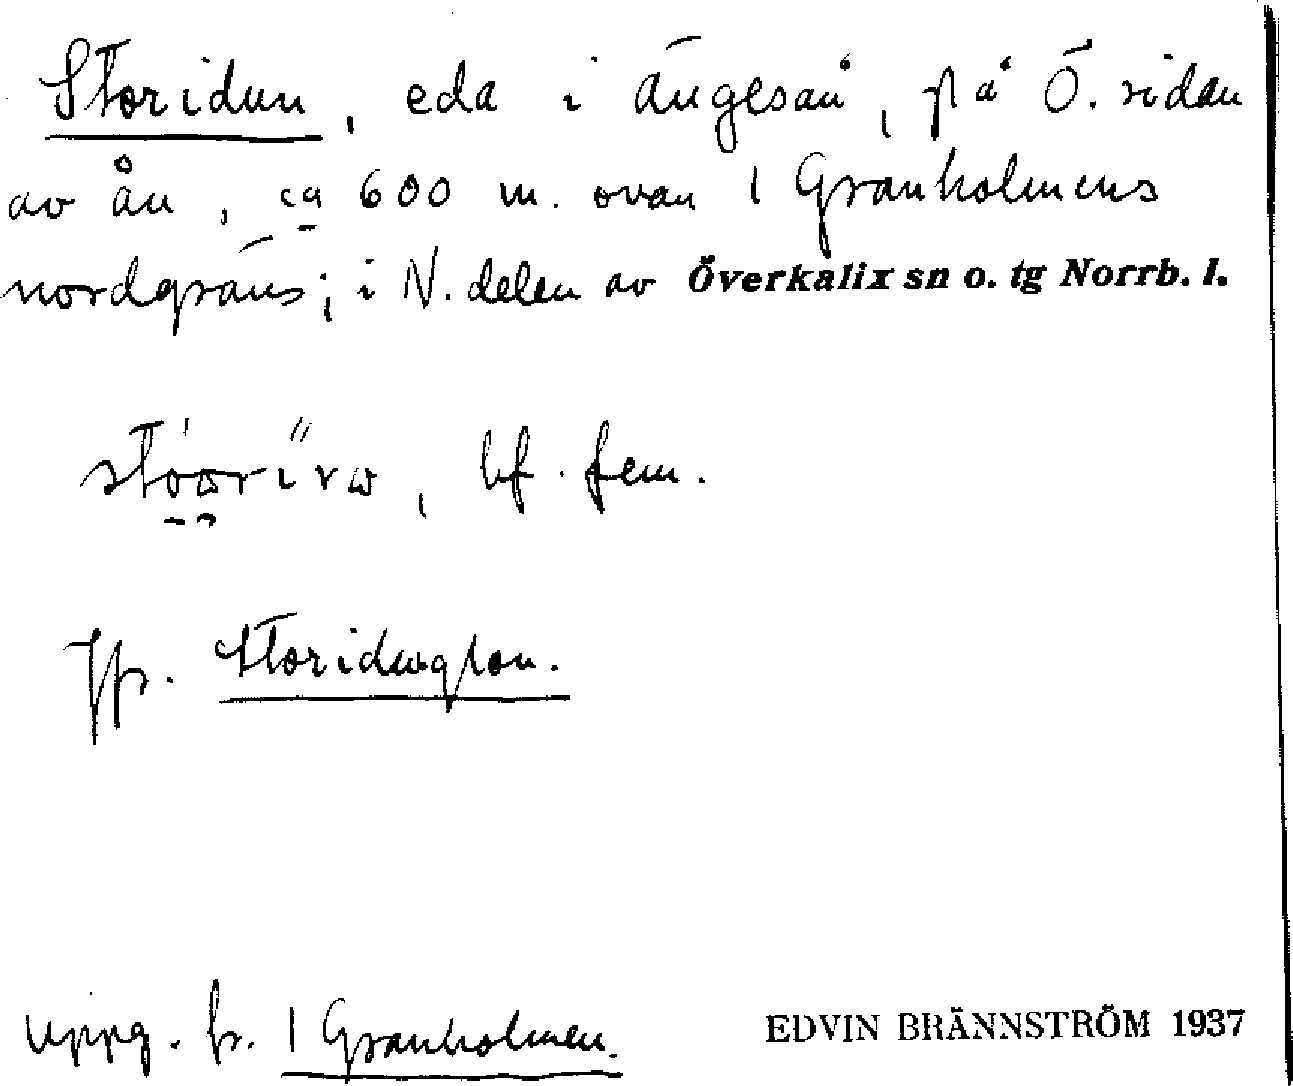 Storidun, eda i ängesån, på Ö. sidan
av ån, ca 600 m. ovan 1 Granholmens
nordgräns; i N. delen av Överkalix sn o. tg Norrb. l.
bf. fem.
Jfr. StoridugrON.
uppg. fr. 1 Granholmen.
EDVIN BRÄNNSTRÖM 1937